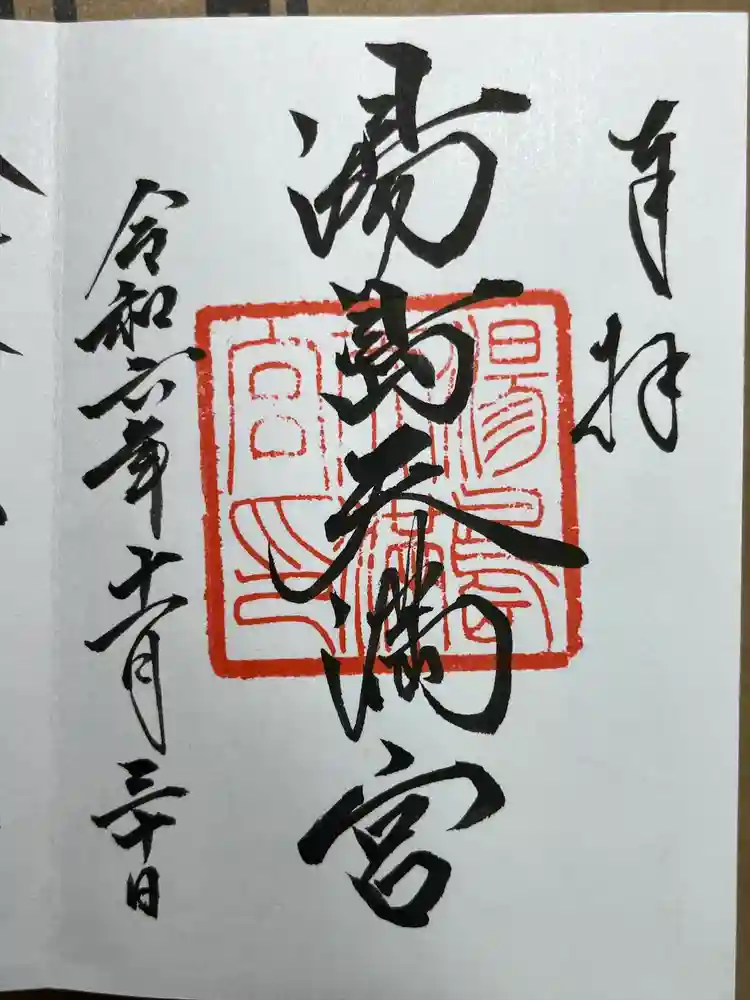 奉拝
湯島天満宮
湯島天満宮印
令和六年十一月三十日